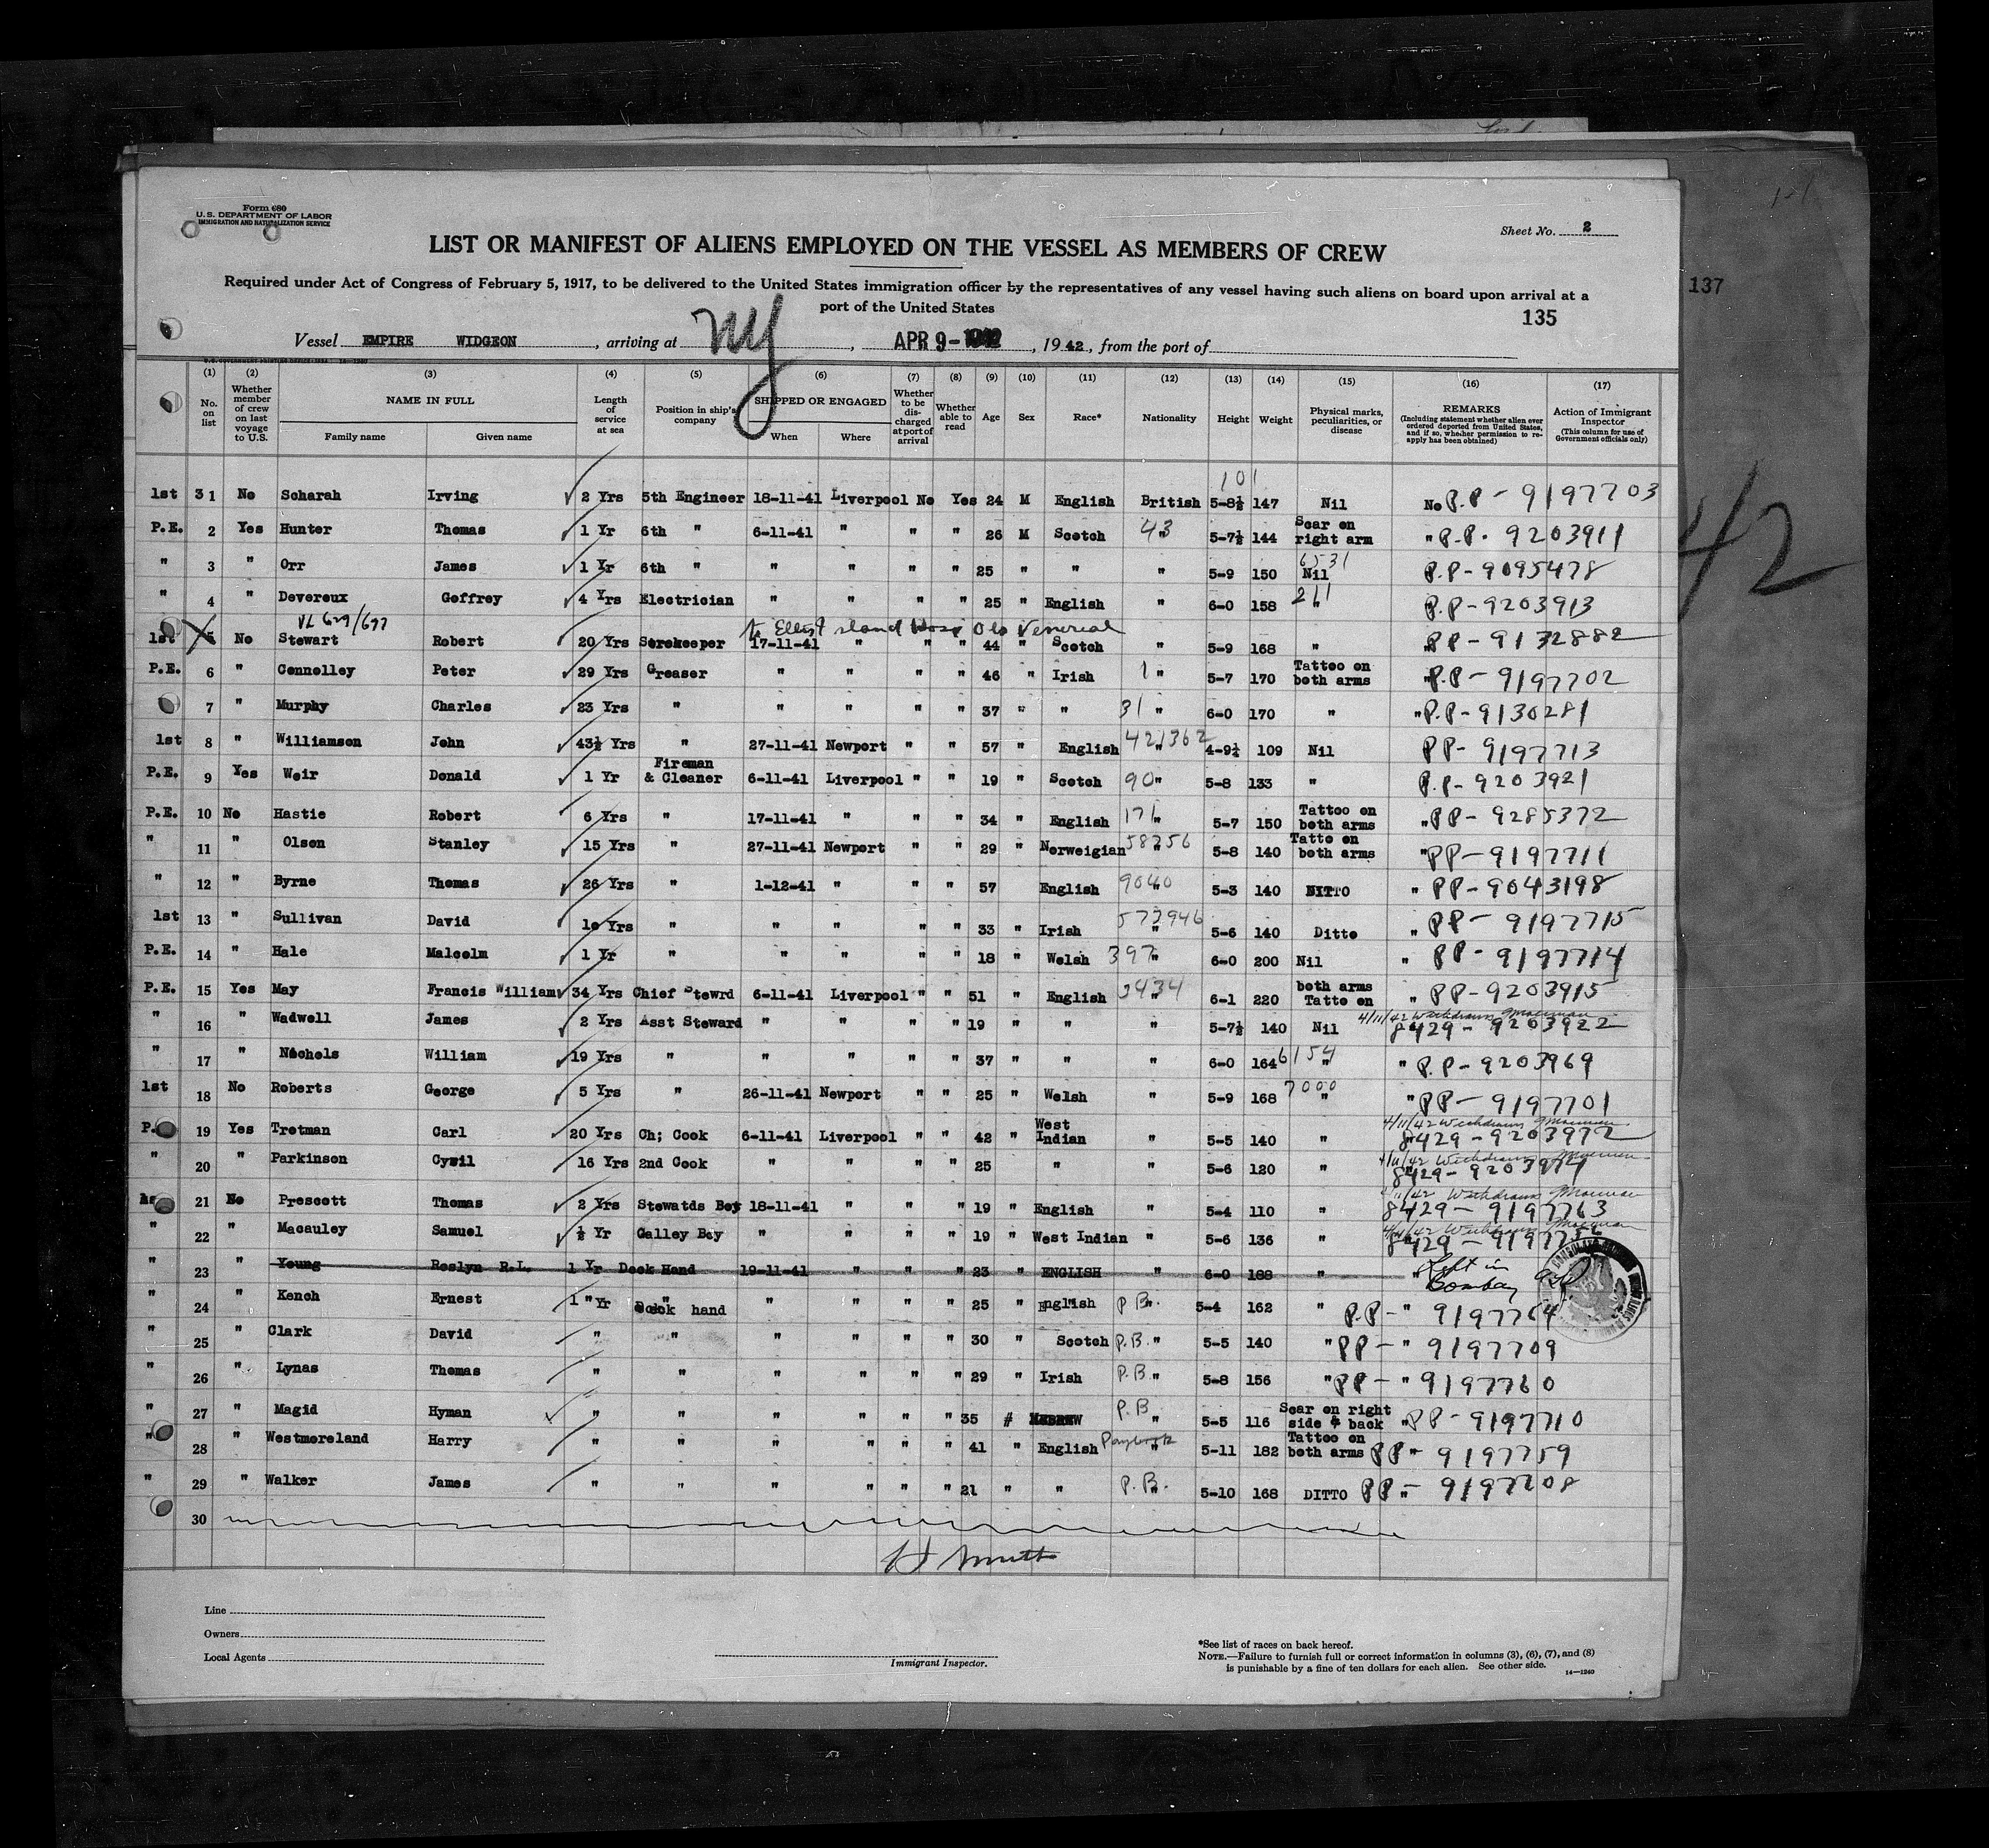 Form 680
U.S. DEPARTMENT OF LABOR
IMMIGRATION AND NATURALIZATION SERVICE
Sheet No. 2
LIST OR MANIFEST OF ALIENS EMPLOYED ON THE VESSEL AS MEMBERS OF CREW
Required under Act of Congress of February 5, 1917, to be delivered to the United States immigration officer by the representatives of any vessel having such aliens on board upon arrival at a
port of the United States
137
135
Vessel EMPIRE WIDGEON, arriving at NY, APR 9-1942, 1942, from the port of
(1) (2) (3) (4) (5) (6) (7) (8) (9) (10) (11) (12) (13) (14) (15) (16) (17)
No. on list Whether member of crew on last voyage to U.S. NAME IN FULL Family name Given name Length of service at sea Position in ship's company SHIPPED OR ENGAGED When Where Whether to be discharged at port of arrival Whether able to read Age Sex Race* Nationality Height Weight Physical marks, peculiarities, or disease REMARKS (Including statement whether alien ever ordered deported from United States, and if so, whether permission to reapply has been obtained) Action of Immigrant Inspector (This column for use of Government officials only)
101
1st 31 No Scharah Irving 2 Yrs 5th Engineer 18-11-41 Liverpool No Yes 24 M English British 5-8½ 147 Nil No P.P - 9197703
P.E. 2 Yes Hunter Thomas 1 Yr 6th " 6-11-41 " " " 26 M Scotch 43 " 5-7½ 144 Scar on right arm " P.P. 9203911
42
" 3 " Orr James 1 Yr 6th " " " " " 25 " " " 5-9 150 6531 Nil P.P - 9095478
" 4 " Devereux Geffrey 4 Yrs Electrician " " " " 25 " English " 6-0 158 211 " P.P - 9203913
VL 629/677 to Ellis Island Hosp Venereal
1st 5 No Stewart Robert 20 Yrs Storekeeper 17-11-41 " " " 44 " Scotch " 5-9 168 " PP - 9132882
P.E. 6 " Connolley Peter 29 Yrs Greaser " " " " 46 " Irish 1 " 5-7 170 Tattoo on both arms " P.P - 9197702
7 " Murphy Charles 23 Yrs " " " " " 37 " " 31 " 6-0 170 " " P.P - 9130281
1st 8 " Williamson John 43½ Yrs " 27-11-41 Newport " " 57 " English 421362 4-9½ 109 Nil PP - 9197713
P.E. 9 Yes Weir Donald 1 Yr Fireman & Cleaner 6-11-41 Liverpool " " 19 " Scotch 90 " 5-8 133 " P.P - 9203921
P.E. 10 No Hastie Robert 6 Yrs " 17-11-41 " " " 34 " English 171 " 5-7 150 Tattoo on both arms " PP - 9285372
" 11 " Olsen Stanley 15 Yrs " 27-11-41 Newport " " 29 " Norweigian 58256 " 5-8 140 Tatto on both arms " PP - 9197711
" 12 " Byrne Thomas 26 Yrs " 1-12-41 " " " 57 English 9040 " 5-3 140 DITTO " PP - 9043198
1st 13 " Sullivan David 10 Yrs " " " " " 33 " Irish 573946 " 5-6 140 Ditto " PP - 9197715
P.E. 14 " Hale Malcolm 1 Yr " " " " " 18 " Welsh 397 " 6-0 200 Nil " PP - 9197714
P.E. 15 Yes May Francis William 34 Yrs Chief Stewrd 6-11-41 Liverpool " " 51 " English 3434 " 6-1 220 both arms Tatto on " PP - 9203915
" 16 " Wadwell James 2 Yrs Asst Steward " " " " 19 " " " 5-7½ 140 Nil 4/11/42 Withdrawn 8429 - 9203922
" 17 " Nichols William 19 Yrs " " " " " 37 " " " 6-0 164 6154 " " P.P - 9203969
1st 18 No Roberts George 5 Yrs " 26-11-41 Newport " " 25 " Welsh " 5-9 168 7000 " " PP - 9197701
P. 19 Yes Tretman Carl 20 Yrs Ch; Cook 6-11-41 Liverpool " " 42 " West Indian " 5-5 140 " 4/11/42 Withdrawn 8429 - 9203972
" 20 " Parkinson Cyril 16 Yrs 2nd Cook " " " " 25 " " 5-6 120 " 4/11/42 Withdrawn 8429 - 9203974
21 No Prescott Thomas 2 Yrs Stewatds Boy 18-11-41 " " " 19 " English " 5-4 110 " 4/11/42 Withdrawn 8429 - 9197763
" 22 " Macauley Samuel ½ Yr Galley Boy " " " " 19 " West Indian " 5-6 136 " 4/11/42 Withdrawn 8429 -
" 23 " Young Roslyn R.L. 1 Yr Deck Hand 19-11-41 " " " 23 " ENGLISH " 6-0 188 " " Left in Bombay
" 24 " Kench Ernest 1 " Yr Deck hand " " " " 25 " English P.B. " 5-4 162 " P.P - " 9197764
" 25 " Clark David " " " " " " 30 " Scotch P.B. " 5-5 140 " PP - " 9197709
" 26 " Lynas Thomas " " " " " " 29 " Irish P.B. " 5-8 156 " PP - " 9197760
" 27 " Magid Hyman " " " " " " 35 # HEBREW P.B. " 5-5 116 Scar on right side & back " PP - 9197710
" 28 " Westmoreland Harry " " " " " " 41 " English Paybook " 5-11 182 Tattoo on both arms PP " - 9197759
" 29 " Walker James " " " " " " 21 " " P.B. " 5-10 168 DITTO PP " - 9197708
30
Line
Owners
Local Agents
Immigrant Inspector.
*See list of races on back hereof.
NOTE.—Failure to furnish full or correct information in columns (3), (6), (7), and (8)
is punishable by a fine of ten dollars for each alien. See other side. 14—1240